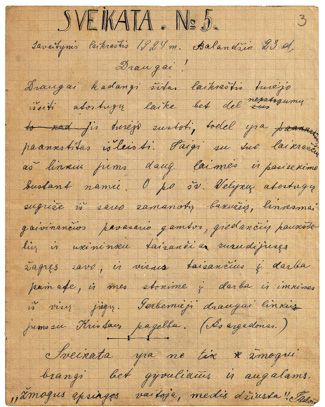 SVEIKATA. No 5.
3
Savaitynis laikraštis 1924 m. Balandžio 23 d.
Draugai!
Draugai kadangi šitas laikraštis turėjo
išeiti atostogų laike bet dėl nepatogumų
jis turėjo sustoti, todėl yra
paankstitas išleisti. Taigi su šuo laikraščiu
aš linkiu jums daug laimės ir pasisekimo
būstant namie. O po šv. Velykų atostogų
sugrįže iš savo samanotų bakūžių, linksmai
gaivinančios pavasario gamtos, giedančių paukšte
lių ir ukininku taisančiu surudijuses
žagres savo, ir visus taisančius į darba
pamate, ir mes stokime į darba ir imkimės
iš visų jėgų. Gerbemieji draugai linkiu
jumssu Kristaus pagelba. (As argedonas.)
Sveikata yra ne tix žmogui
brangi bet gyvuliams ir augalams.
"Žmogus spingęs vaitoja, medis džiūsta"